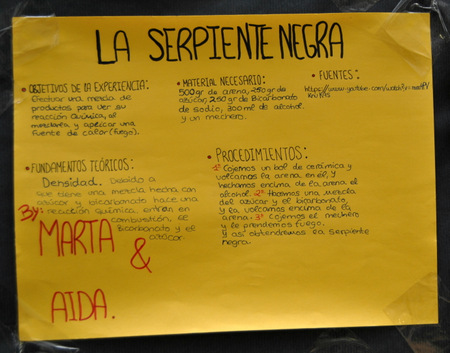 LA SERPIENTE NEGRA
• OBJETIVOS DE LA EXPERIENCIA:
Efectuar una mezcla de
productos para ver su
reacción química, al
mezclarla y aplicar una
fuente de calor (fuego).
• MATERIAL NECESARIO:
500 gr de arena, 250 gr de
azúcar, 250 gr de Bicarbonato
de sodio, 200 ml de alcohol.
y un mechero.
• FUENTES:
https://www.youtube.com/watch?v=
• FUNDAMENTOS TEÓRICOS:
Densidad. Debido a
que tiene una mezcla hecha con
azúcar y bicarbonato hace una
reacción química. entran en
combustión, el
Bicarbonato y el
azúcar.
• PROCEDIMIENTOS:
1º Cojemos un bol de cerámica y
volcamos la arena en él, y
hechamos encima de la arena el
alcohol. 2º Hacemos una mezcla
del azúcar y el bicarbonato,
y la volcamos encima de la
arena. 3º Cojemos el mechero
y le prendemos fuego.
Y así obtendremos la serpiente
negra.
By:
MARTA
&
AIDA.